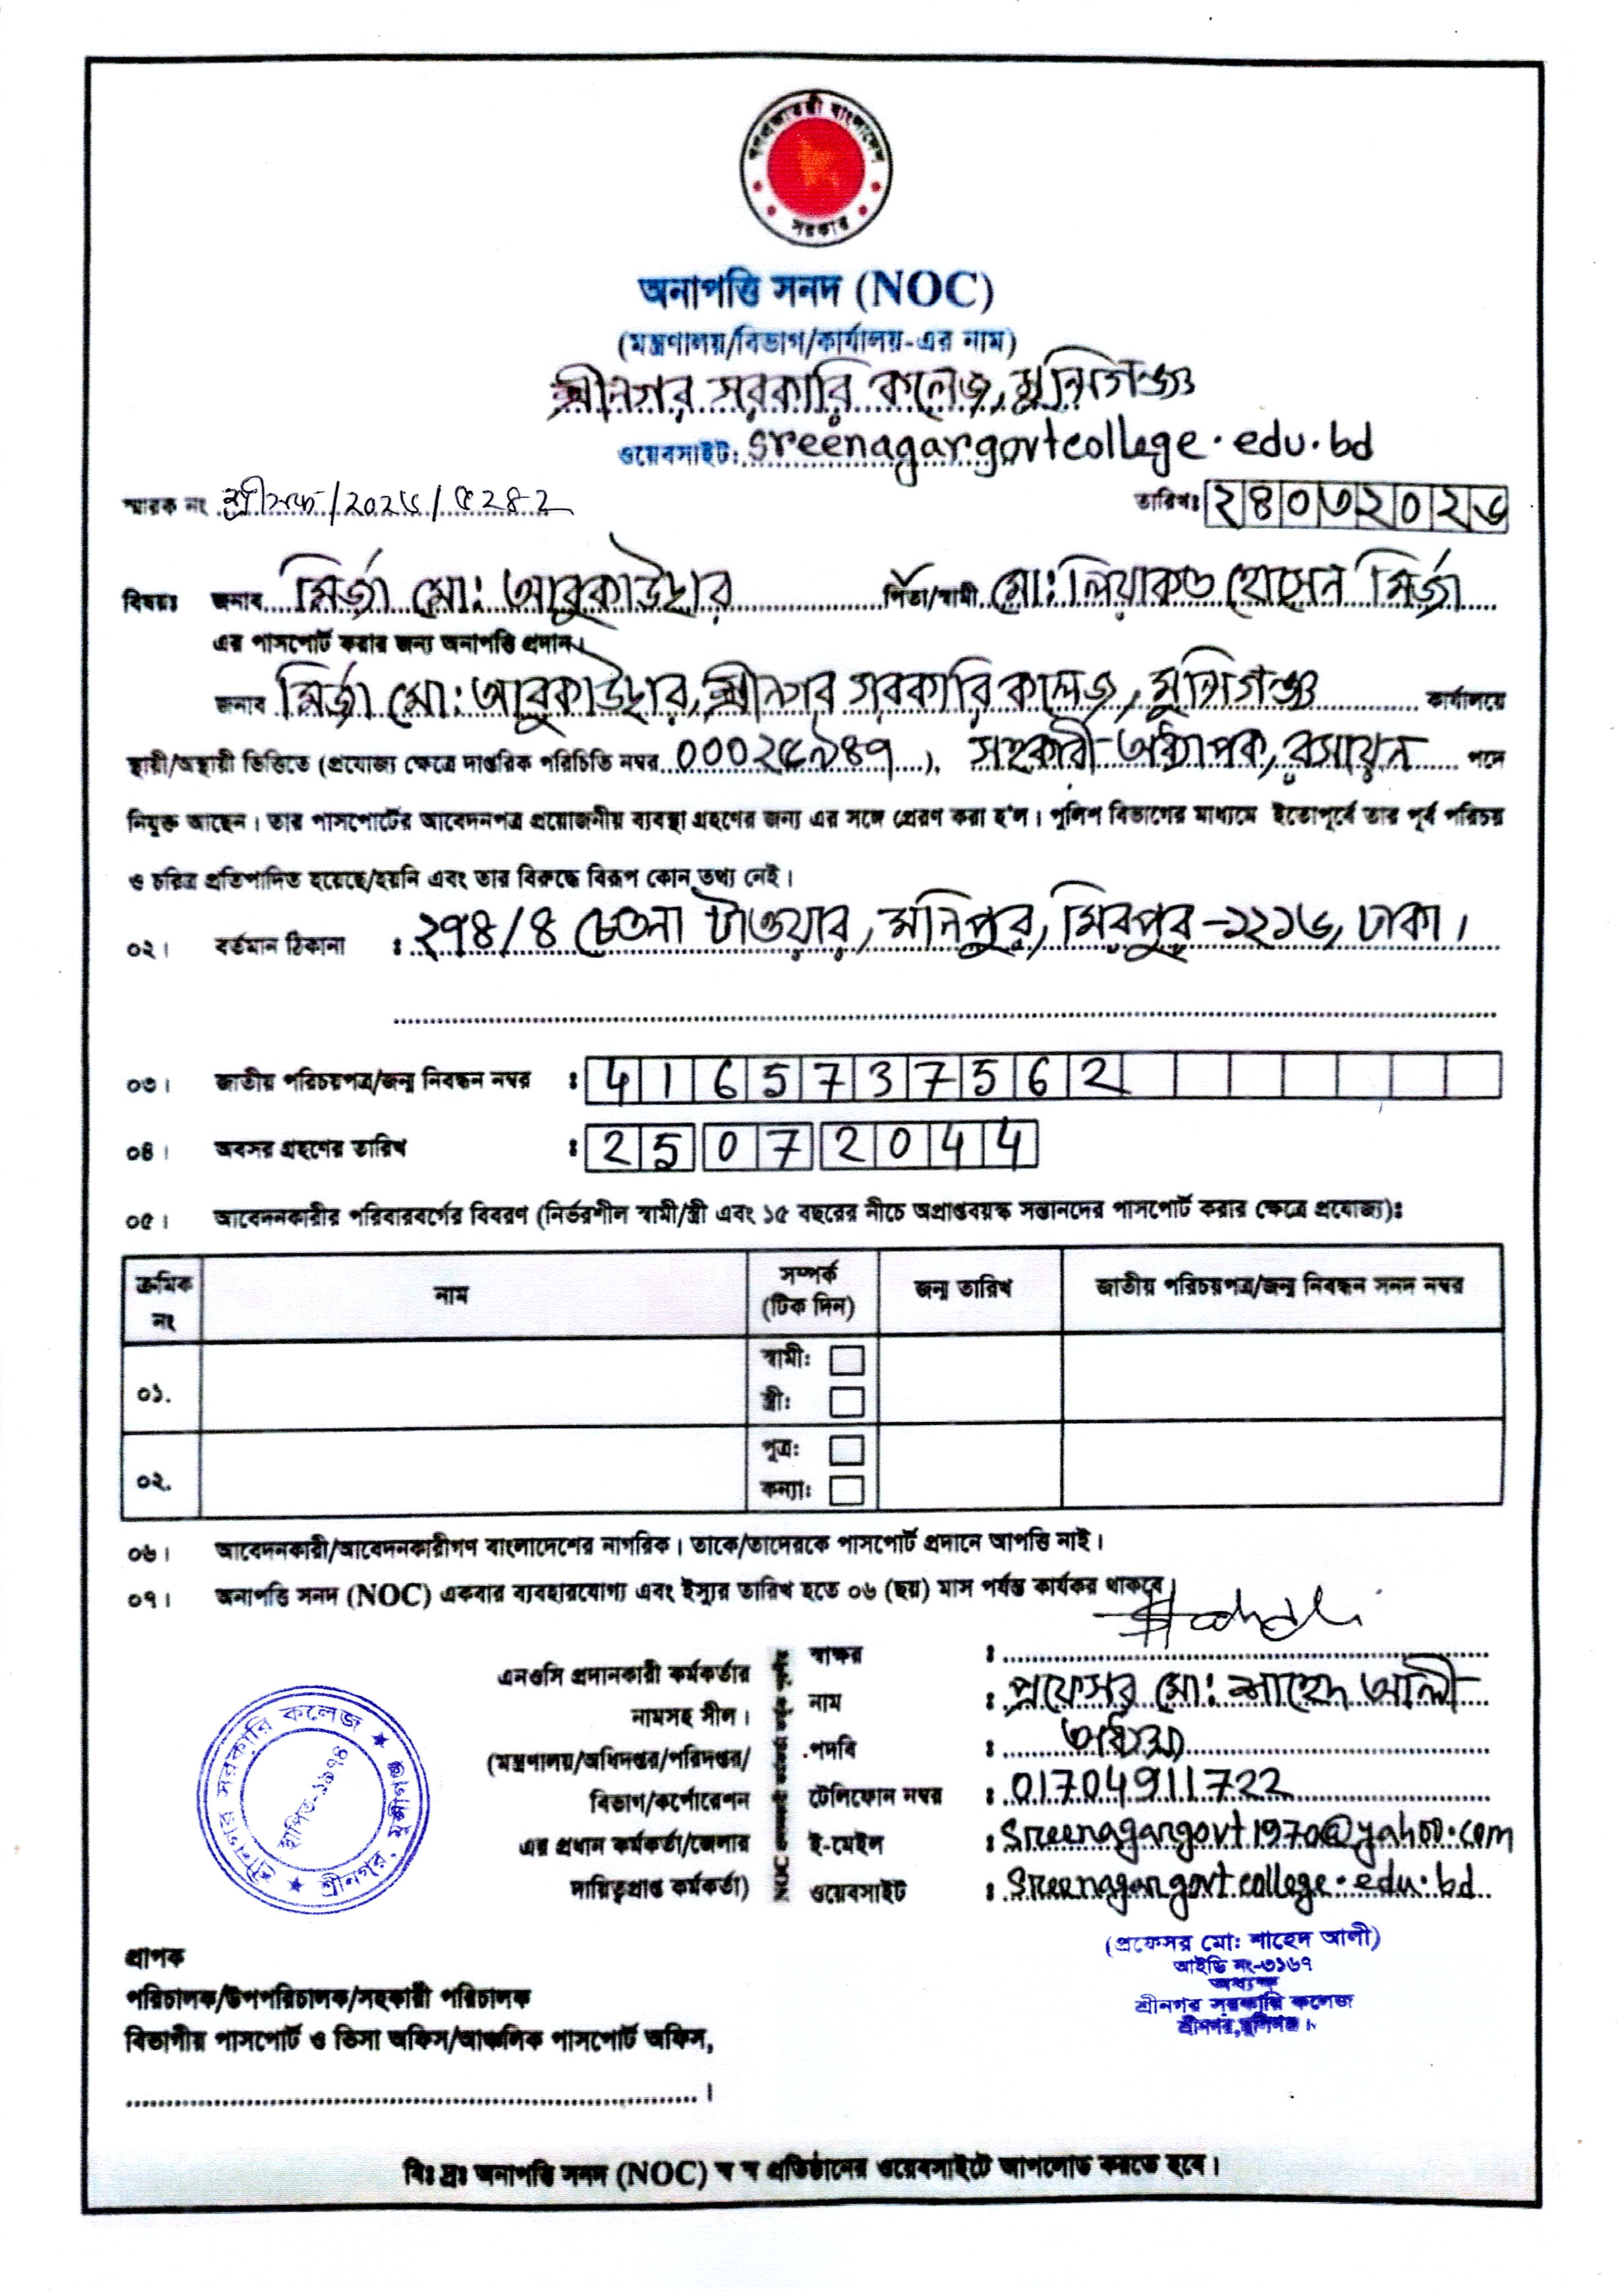 গণপ্রজাতন্ত্রী বাংলাদেশ
সরকার
অনাপত্তি সনদ (NOC)
(মন্ত্রণালয়/বিভাগ/কার্যালয়-এর নাম)
শ্রীনগর সরকারি কলেজ, মুন্সিগঞ্জ
ওয়েবসাইট: sreenagargovtcollege.edu.bd
স্মারক নং শ্রীসক/২০২৬/৫২৪২
তারিখঃ ২৪০৩২০২৬
বিষয়ঃ জনাব মির্জা মো: আবুকাউছার পিতা/স্বামী মো: লিয়াকত হোসেন মির্জা
এর পাসপোর্ট করার জন্য অনাপত্তি প্রদান।
জনাব মির্জা মো: আবুকাউছার, শ্রীনগর সরকারি কলেজ, মুন্সিগঞ্জ কার্যালয়ে
স্থায়ী/অস্থায়ী ভিত্তিতে (প্রযোজ্য ক্ষেত্রে দাপ্তরিক পরিচিতি নম্বর ), সহকারী অধ্যাপক, রসায়ন পদে
নিযুক্ত আছেন। তার পাসপোর্টের আবেদনপত্র প্রয়োজনীয় ব্যবস্থা গ্রহণের জন্য এর সঙ্গে প্রেরণ করা হ'ল। পুলিশ বিভাগের মাধ্যমে ইতোপূর্বে তার পূর্ব পরিচয়
ও চরিত্র প্রতিপাদিত হয়েছে/হয়নি এবং তার বিরুদ্ধে বিরূপ কোন তথ্য নেই।
০২। বর্তমান ঠিকানা : ২৭৪/৪ চেতনা টাওয়ার, মনিপুর, মিরপুর-১২১৬, ঢাকা।
০৩। জাতীয় পরিচয়পত্র/জন্ম নিবন্ধন নম্বর : 4165737562
০৪। অবসর গ্রহণের তারিখ : 25072044
০৫। আবেদনকারীর পরিবারবর্গের বিবরণ (নির্ভরশীল স্বামী/স্ত্রী এবং ১৫ বছরের নীচে অপ্রাপ্তবয়স্ক সন্তানদের পাসপোর্ট করার ক্ষেত্রে প্রযোজ্য)ঃ
ক্রমিক নং নাম সম্পর্ক (টিক দিন) জন্ম তারিখ জাতীয় পরিচয়পত্র/জন্ম নিবন্ধন সনদ নম্বর
০১. স্বামী:
স্ত্রী:
০২. পুত্র:
কন্যা:
০৬। আবেদনকারী/আবেদনকারীগণ বাংলাদেশের নাগরিক। তাকে/তাদেরকে পাসপোর্ট প্রদানে আপত্তি নাই।
০৭। অনাপত্তি সনদ (NOC) একবার ব্যবহারযোগ্য এবং ইস্যুর তারিখ হতে ০৬ (ছয়) মাস পর্যন্ত কার্যকর থাকবে।
এনওসি প্রদানকারী কর্মকর্তার
নামসহ সীল।
(মন্ত্রণালয়/অধিদপ্তর/পরিদপ্তর/
বিভাগ/কর্পোরেশন
এর প্রধান কর্মকর্তা/জেলার
দায়িত্বপ্রাপ্ত কর্মকর্তা)
NOC
স্বাক্ষর :
নাম : প্রফেসর মো: শাহেদ আলী
পদবি : অধ্যক্ষ
টেলিফোন নম্বর : 01704911722
ই-মেইল : sreenagargovt1970@yahoo.com
ওয়েবসাইট : sreenagargovtcollege.edu.bd
শ্রীনগর সরকারি কলেজ ★ শ্রীনগর, মুন্সীগঞ্জ ★
স্থাপিত-১৯৭৪
(প্রফেসর মো: শাহেদ আলী)
আইডি নং-৩১৬৭
অধ্যক্ষ
শ্রীনগর সরকারি কলেজ
শ্রীনগর, মুন্সিগঞ্জ।
প্রাপক
পরিচালক/উপপরিচালক/সহকারী পরিচালক
বিভাগীয় পাসপোর্ট ও ভিসা অফিস/আঞ্চলিক পাসপোর্ট অফিস,
বিঃ দ্রঃ অনাপত্তি সনদ (NOC) স্ব স্ব প্রতিষ্ঠানের ওয়েবসাইটে আপলোড করতে হবে।